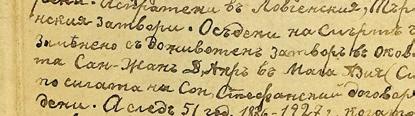 дени. Испратени въ Ловченския, Търн
нския затвори. Осъдени на смърть
Замѣнено съ доживотен затворъ въ оков
та Сан-Жан Д, Акръ въ Мала Азия (Си
по силата на Сан Стефанский договор
дени. А следъ 51 год. 1876-1927 г. когато